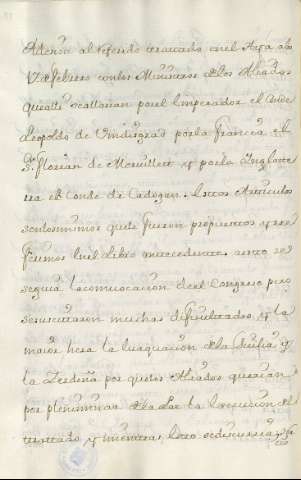 Adhesion al referido tratado en el Aya a los
17 de febrero con los Ministros de los Aliados
que alli se allavan por el Emperador el Conde
Leopoldo de Vindisgrad por la Francia el
Sr. Florian de Morvillert y por la Inglate
rra el Conde de Cadogan. Estos Articulos
son los mismos que le fueron propuestos y re
ferimos en el Libro antecedente a esto se
seguia la convocacion de el Congreso pero
se suscitaron muchas dificultades y la
maior hera la evaquacion de la Sicilia y
la Zerdeña por que los Aliados querian
por preliminar de la Paz la execucion del
tratado y mientras esto se discurria